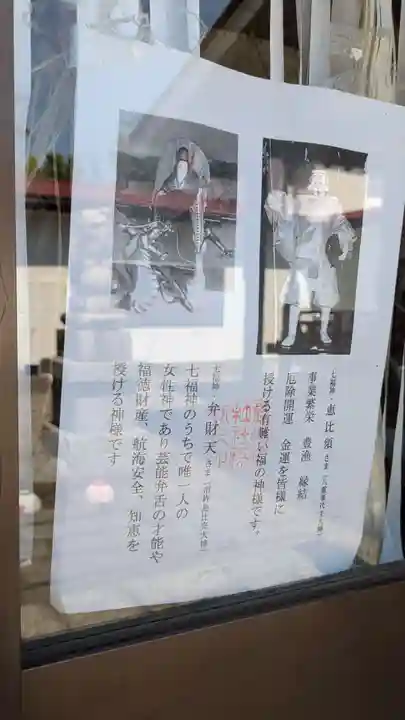 七福神・恵比須さま
事業繁栄 豊漁 縁結
厄除開運 金運を皆様に
授ける有難い福の神様です。
七福神・弁財天さま
七福神のうちで唯一人の
女性神であり芸能弁舌の才能や
福徳財産、航海安全、知恵を
授ける神様です